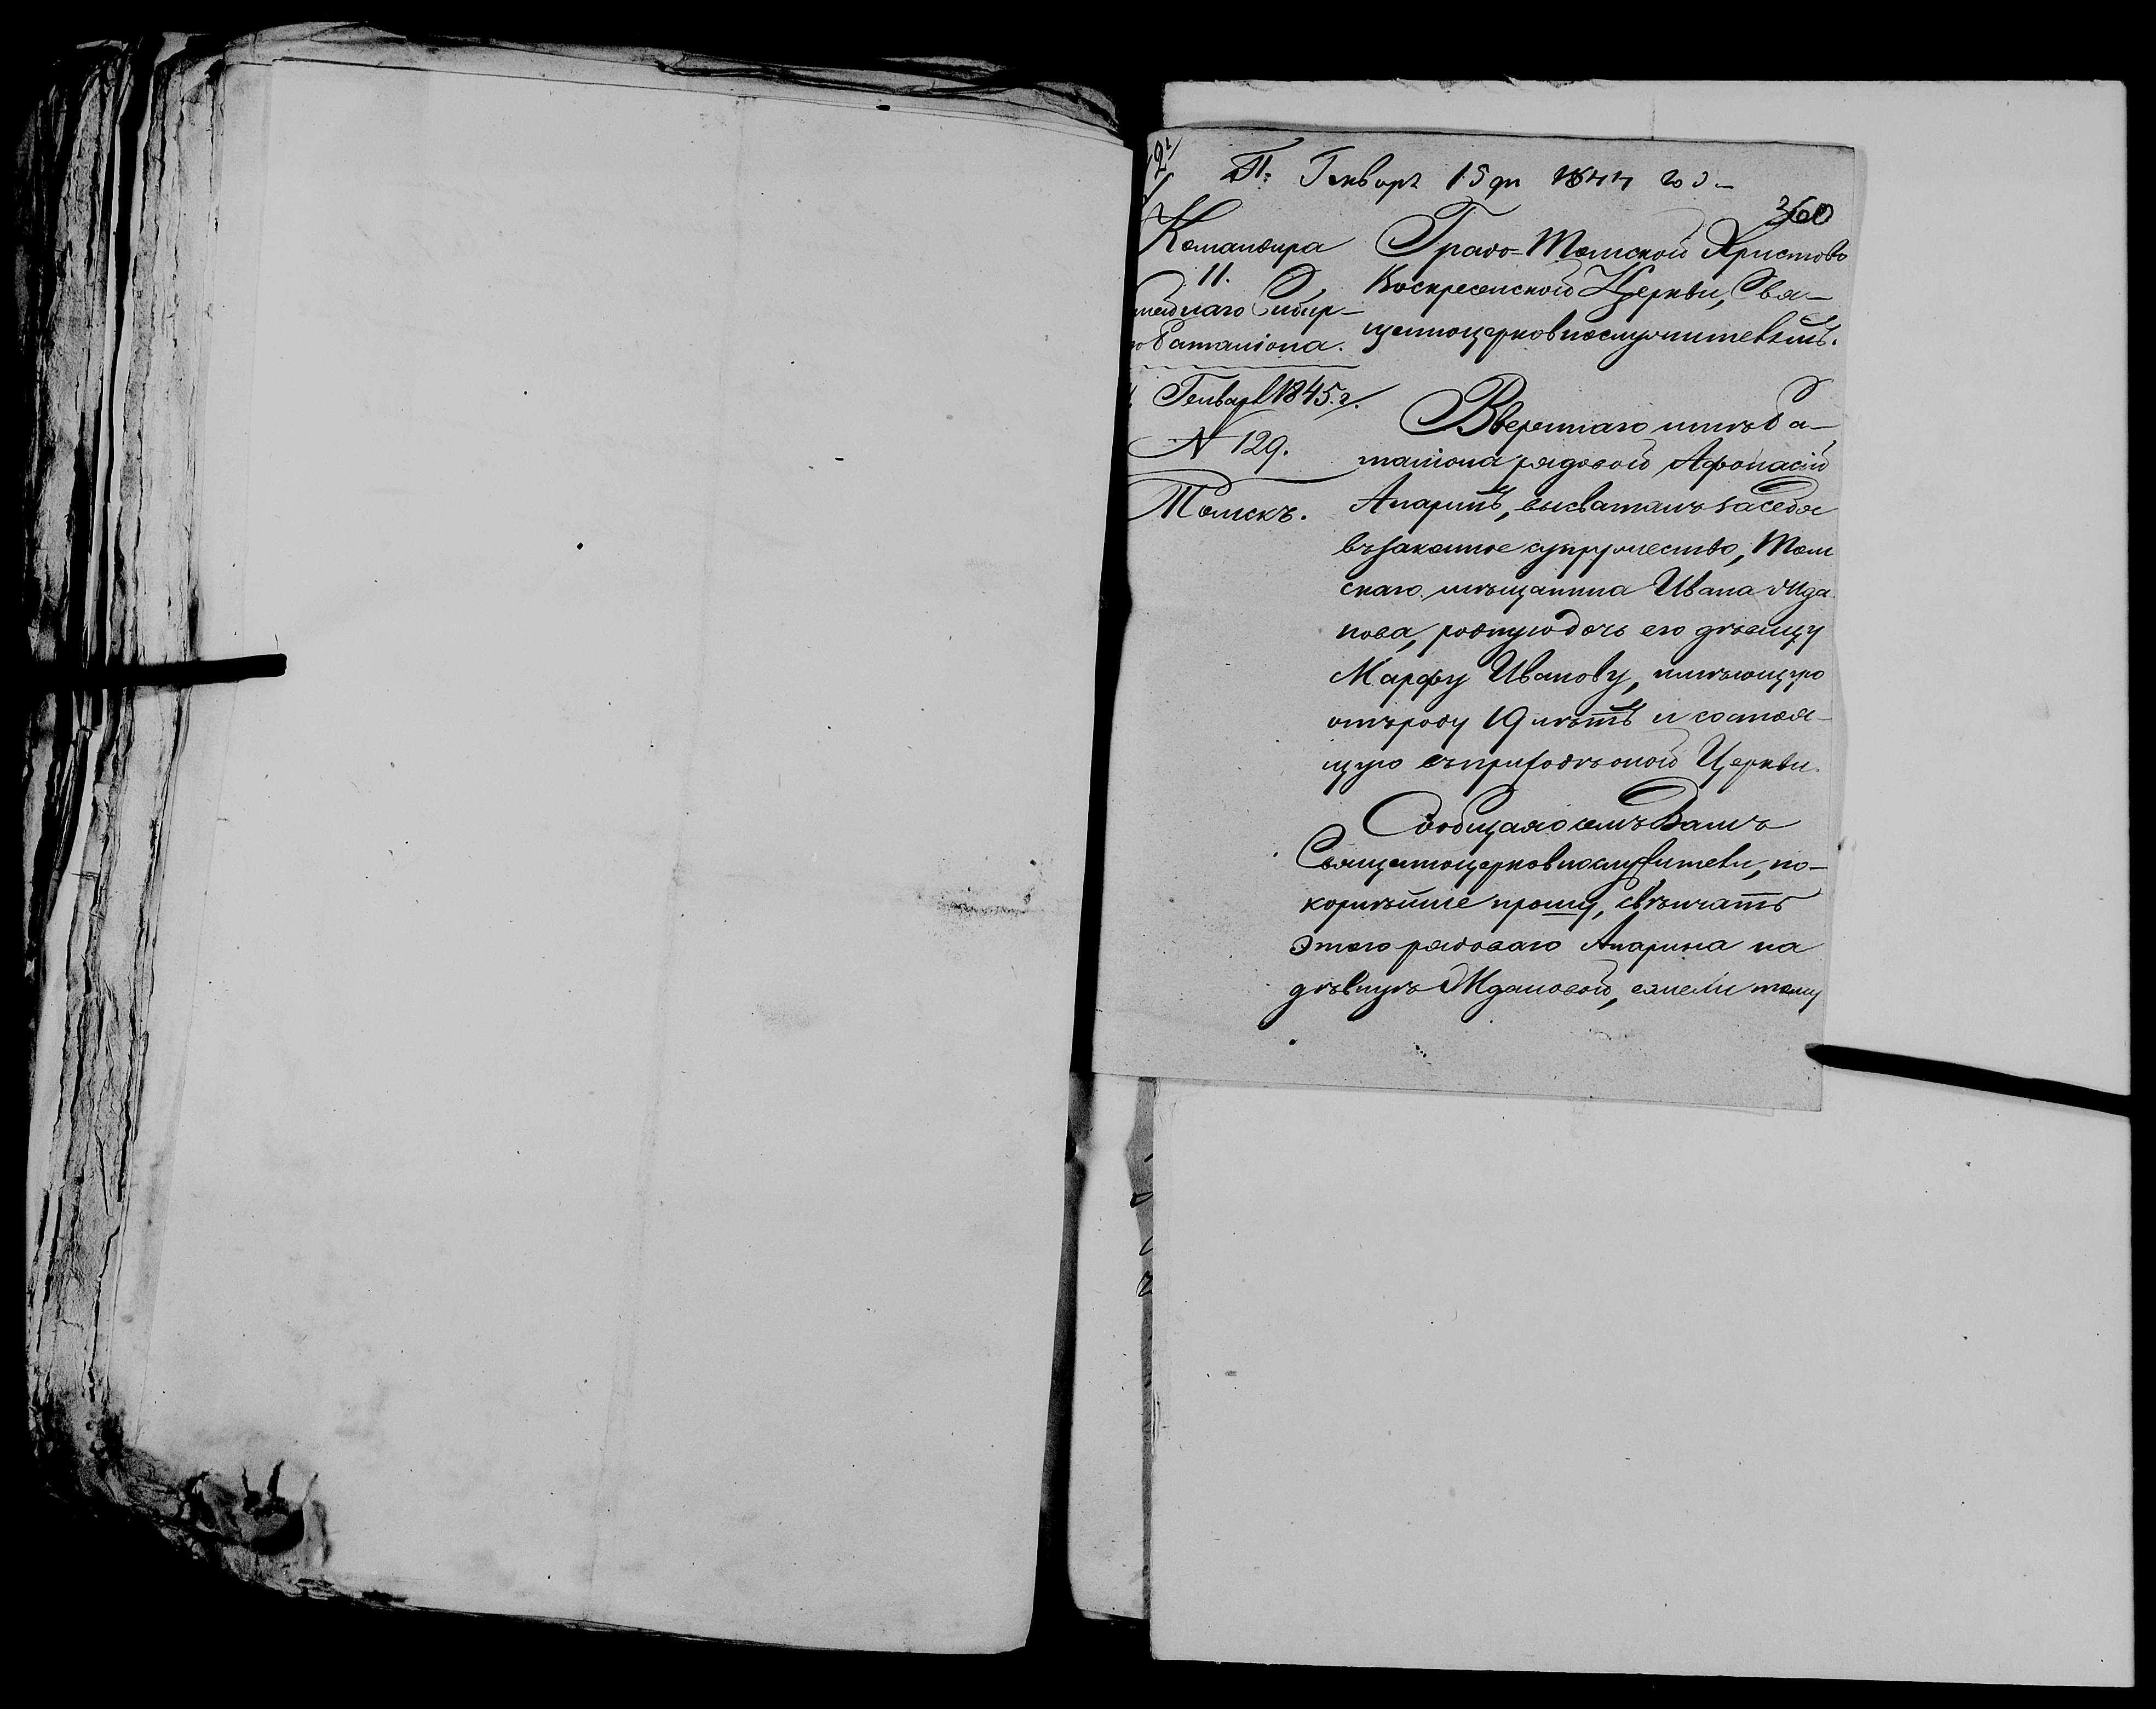 2
П. Генваря 15 дн 1844 год
360
Командира
11.
нейнаго Сибир-
го баталіона.
Генваря 1845. г.
N 129.
Томскъ.
Градо-Томской Христово
Воскресенской Церкви, Свя-
щенноцерковнослужителямъ.
Ввереннаго мнѣ ба-
таліона рядовой Афонасій
Апаринъ, высваталъ засебя
взаконное супружество, Том
скаго мѣщанина Ивана Жда
нова, роднуюдочь его дѣвицу
Марфу Иванову, имѣющую
отъроду 19 лѣтъ и состоя-
щую въприходѣ оной Церкви.
Сообщая о семъ Вамъ
Священноцерковнослужители, по-
корнѣйше прошу, свѣнчать
этого рядоваго Апарина на
дѣвицѣ Ждановой, ежели тому